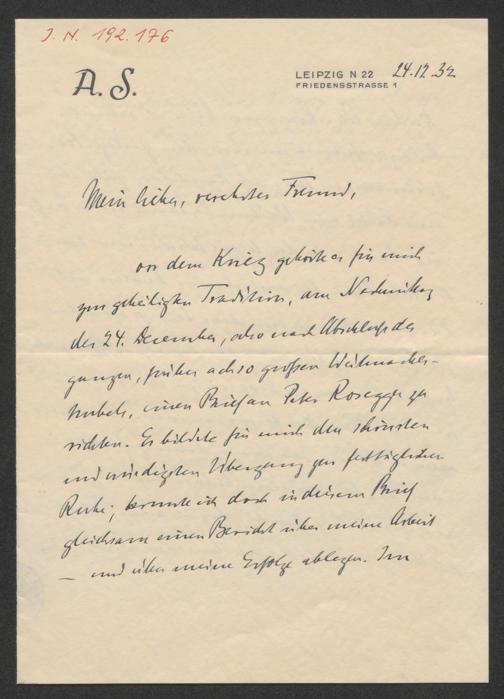 J. N. 192.176
A. S.
LEIPZIG N 22 24.12.32
FRIEDENSSTRASSE 1
Mein lieber, verehrter Freund,
vor dem Krieg gehörte es für mich
zur geheiligten Tradition, am Nachmittag
des 24. Dezember, also nach Abschluß des
ganzen, früher ach so großen Weihnachts-
trubels, einen Brief an Peter Rosegger zu
richten. Es bildete für mich den schönsten
und würdigsten Übergang zur festtäglichen
Ruhe; konnte ich doch in diesem Brief
gleichsam einen Bericht über meine Arbeit
– und über meine Erfolge ablegen. Im